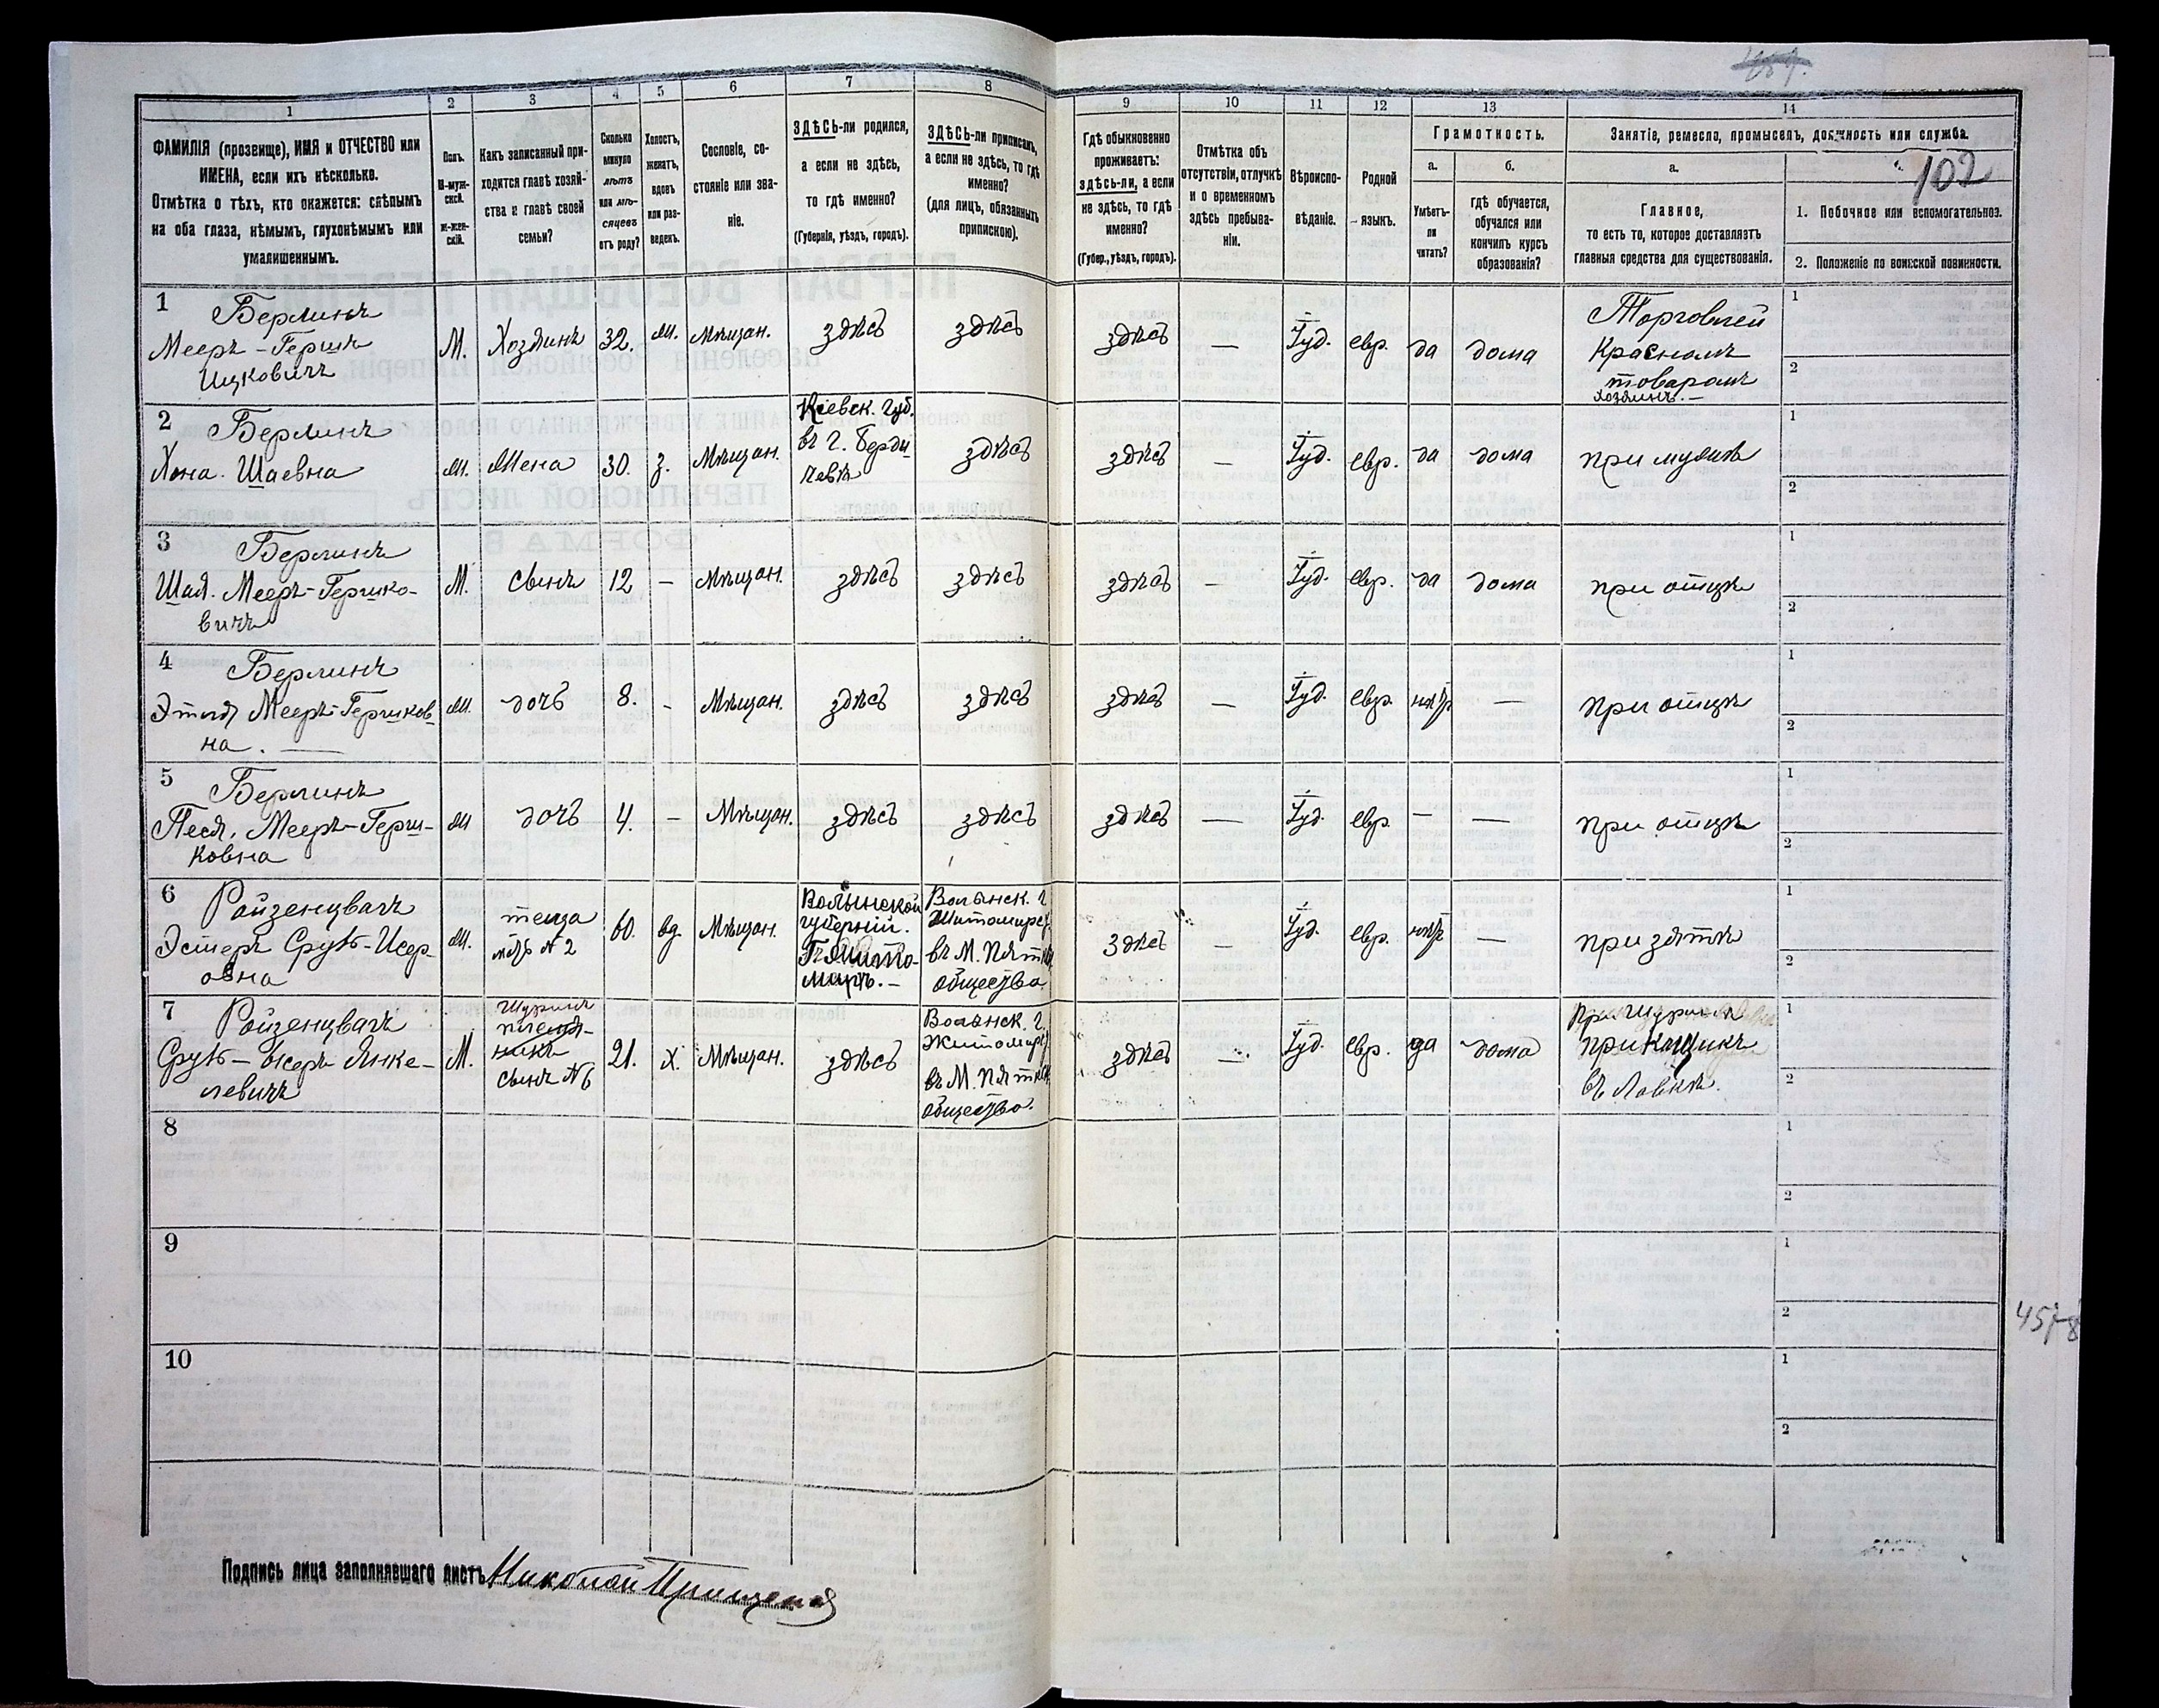 1
2
3
4
5
6
7
8
9
10
11
12
13
14
ФАМИЛІЯ (прозвище), ИМЯ и ОТЧЕСТВО или
ИМЕНА, если ихъ нѣсколько.
Отмѣтка о тѣхъ, кто окажется: слѣпымъ
на оба глаза, нѣмымъ, глухонѣмымъ или
умалишеннымъ.
Полъ.
М-муж-
ской.
ж-жен-
скій.
Какъ записанный при-
ходится главѣ хозяй-
ства и главѣ своей
семьи?
Сколько
минуло
лѣтъ
или мѣ-
сяцевъ
отъ роду?
Холостъ,
женатъ,
вдовъ
или раз-
веденъ.
Сословіе, со-
стояніе или зва-
ніе.
ЗДѢСЬ-ли родился,
а если не здѣсь,
то гдѣ именно?
(Губернія, уѣздъ, городъ).
ЗДѢСЬ-ли приписанъ,
а если не здѣсь, то гдѣ
именно?
(для лицъ, обязанныхъ
припискою).
Гдѣ обыкновенно
проживаетъ:
здѣсь-ли, а если
не здѣсь, то гдѣ
именно?
(Губер., уѣздъ, городъ).
Отмѣтка объ
отсутствіи, отлучкѣ
и о временномъ
здѣсь пребыва-
ніи.
Вѣроиспо-
вѣданіе.
Родной
языкъ.
Грамотность.
а.
Умѣетъ-
ли
читать?
б.
гдѣ обучается,
обучался или
кончилъ курсъ
образованія?
Занятіе, ремесло, промыселъ, должность или служба.
а.
Главное,
то есть то, которое доставляетъ
главныя средства для существованія.
102
1. Побочное или вспомогательное.
2. Положеніе по воинской повинности.
1 Берлинъ
Мееръ-Гершъ
Ицковичъ
М. Хозяинъ 32. ж. Мѣщан. здѣсь здѣсь
здѣсь — Іуд. евр. да дома
Торговлей
Краснымъ
товаромъ
хозяинъ.—
1
2
2 Берлинъ
Хона Шаевна
ж. Жена 30. з. Мѣщан.
Кіевск. губ.
въ г. Берди-
чевѣ
здѣсь
здѣсь — Іуд. евр. да дома при мужѣ
1
2
3 Берлинъ
Шая. Мееръ-Гершко-
вичъ
М. сынъ 12 — Мѣщан. здѣсь здѣсь
здѣсь — Іуд. евр. да дома при отцѣ
1
2
4 Берлинъ
Этля Мееръ-Гершков-
на. —
ж. дочь 8. - Мѣщан. здѣсь здѣсь
здѣсь — Іуд. евр. нѣтъ — при отцѣ
1
2
5 Берлинъ
Песя. Мееръ-Герш-
ковна
ж дочь 4. — Мѣщан. здѣсь здѣсь
здѣсь — Іуд. евр. — — при отцѣ
1
2
6 Ройзенцвагъ
Эстеръ Сруль-Исер-
овна
ж.
теща
мать № 2
60. вд. Мѣщан.
Волынской
губерніи.
Г. Жито-
миръ.—
Волынск. г.
Житомирс.
въ М. Пятк.
общество
здѣсь — Іуд. евр. нѣтъ — при зятѣ
1
2
7 Ройзенцвагъ
Сруль-Исеръ Янке-
левичъ
М.
Шуринъ
племян-
никъ
сынъ № 6
21. х. Мѣщан. здѣсь
Волынск. г.
Житомир.
въ М. Пятк.
общество.
здѣсь — Іуд. евр. да дома
при шуринѣ
прикащикъ
въ Лавкѣ.
1
2
8
1
2
9
1
2
10
1
2
Подпись лица заполнявшаго листъ Николай